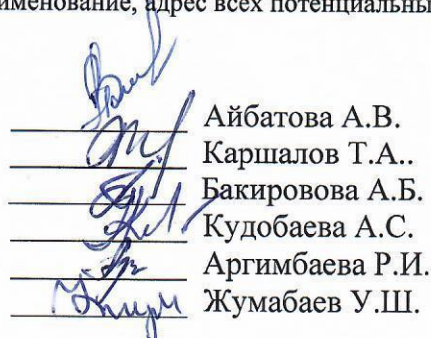 именование, адрес всех потенциальны
Айбатова А.В.
Каршалов Т.А..
Бакировова А.Б.
Кудобаева А.С.
Аргимбаева Р.И.
Жумабаев У.Ш.